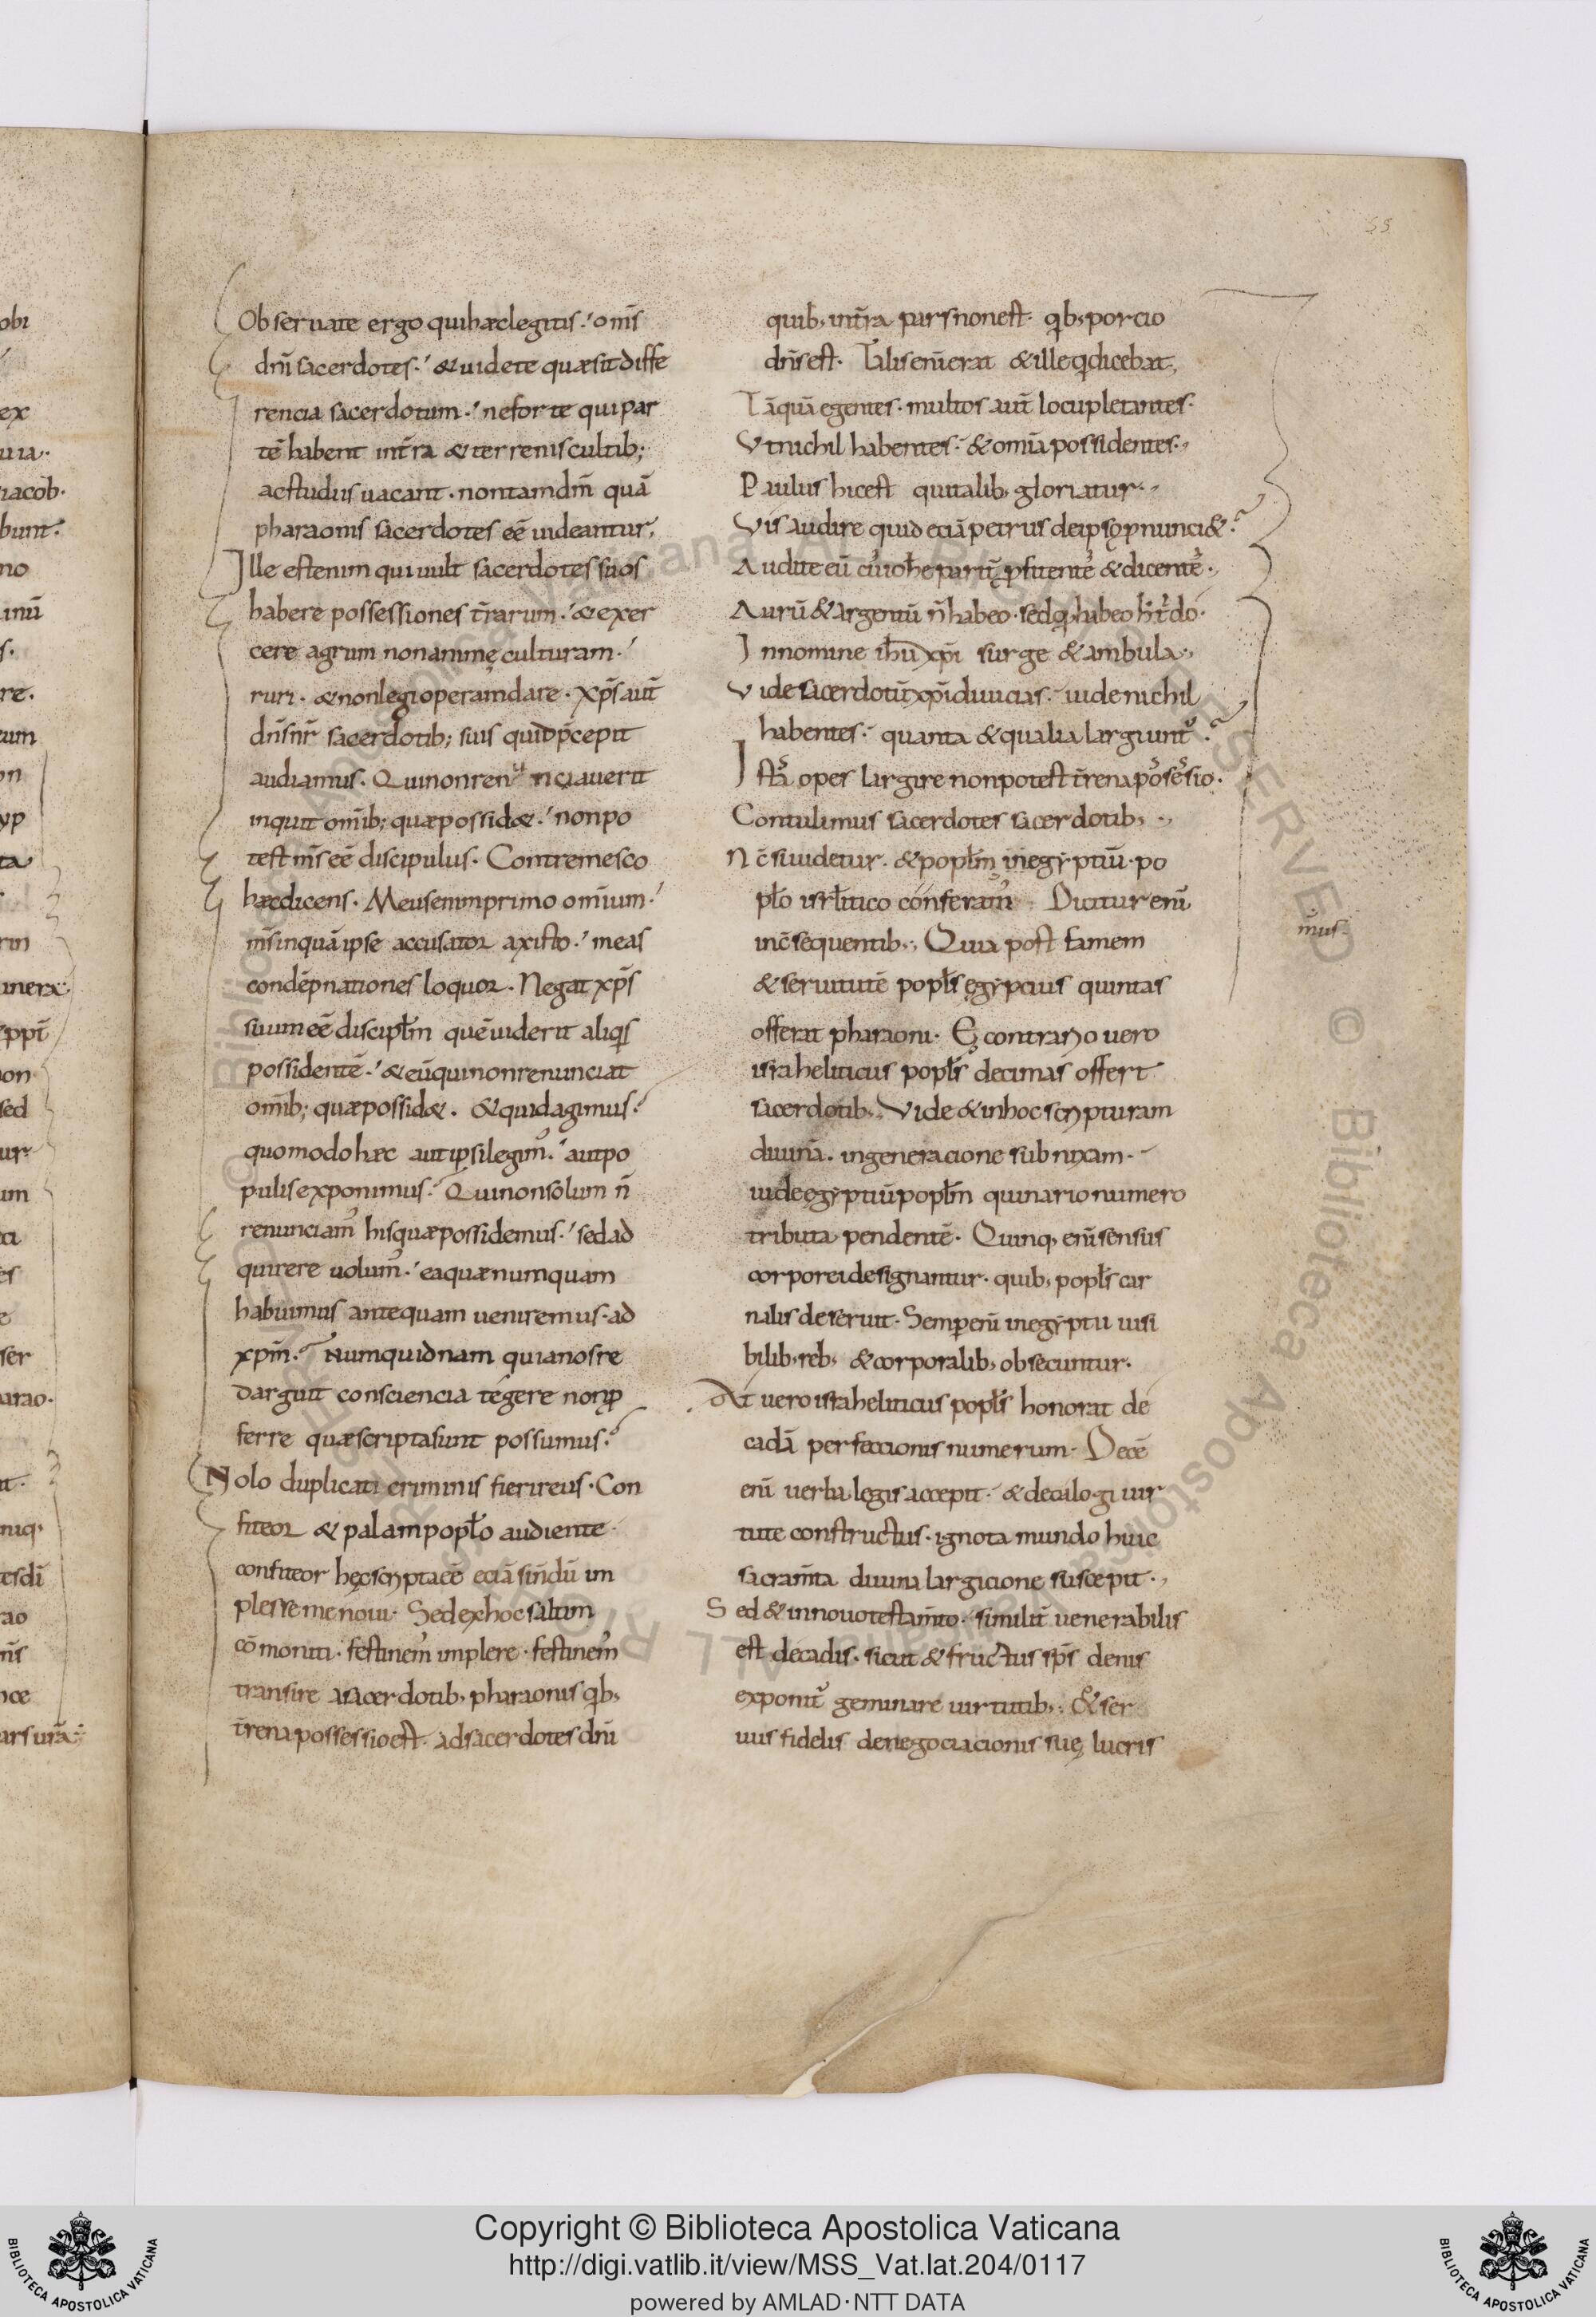 55
Observate ergo qui hæc legitis. om̅s
dn̅i sacerdotes. & videte quæ sit diffe
rencia sacerdotum. ne forte qui par
te̅ habent in t̅ra & terrenis cultib;
ac studiis vacant. non tam dn̅i qua̅
pharaonis sacerdotes ee̅ videantur.
Ille est enim qui vult sacerdotes suos
habere possessiones t̅rarum. & exer
cere agrum non animę culturam.
ruri. & non legi operam dare. xp̅s aut̅
dn̅s nr̅ sacerdotib; suis quid p̅cepit
audiamus. Qui non renunciaverit
inquit om̅ib; quæ possid&. non po
test m̅s ee̅ discipulus. Contremesco
hæc dicens. Meus enim primo omium.
m̅s inqua̅ ipse accusator axisto. meas
conde̅pnationes loquor. Negat xp̅s
suum ee̅ discipł̅m que̅ viderit aliq̅s
possidente̅. & eu̅ qui non renunciat
om̅ib; quæ possid&. & quid agimus.
quomodo hæc aut ipsi legim᾽. aut po
pulis exponimus. Qui non solum n̅
renunciam᾽ his quæ possidemus. sed ad
quirere volum᾽. ea quæ numquam
habuimus antequam veniremus. ad
xpm̅. Numquid nam quia nos re
darguit consciencia tegere non p
ferre quæ scripta sunt possumus.
Nolo duplicati criminis fieri reus. Con
fiteor & palam popł̅o audiente.
confiteor hęc scripta ee̅ ecia̅ si n̅du̅ im
plesse me novi. Sed ex hoc saltim
co̅moniti. festinem᾽ implere. festinem᾽
transire a sacerdotib, pharaonis qb,
t̅rena possessio est. ad sacerdotes dn̅i
quib, in t̅ra pars non est. qb, porcio
dn̅s est. Talis eni̅ erat & ille qi dicebat.
Ta̅qua̅ egentes. multos aut̅ locupletantes.
Ut nichil habentes. & omia̅ possidentes.
Paulus hic est qui talib, gloriatur.
Vis audire quid ecia̅ petrus de ipso p nunci&.
Audite eu̅
Auru̅ & argentu̅ n̅ habeo. sed q habeo h t do.
In nomine ih̅u xp̅i surge & ambula.
Vide sacerdotu̅ xp̅i divicias. vide nichil
habentes. quanta & qualia largiunt᾽.
Ista᾽ opes largire non potest t̅rena po᾽se᾽sio.
Contulimus sacerdotes sacerdotib,
Nc̅ si videtur. & popł̅m in egyptiu̅. po
pł̅o isrł̅itico conferam᾽ Dicitur eni̅
m᾽us
in c̅sequentib, Quia post famem
& servitute̅ popł̅s ęgypcius quintas
offerat pharaoni. E contrario vero
israheliticus popł̅s decimas offert
sacerdotib, Vide & in hoc scripturam
divina̅. in generacione subnixam.
vide ęgyptiu̅ popł̅m quinario numero
tributa pendente̅. Quinq, eni̅ sensus
corporei designantur. quib, popł̅s car
nalis deservit. Semp eni̅ in egyptu visi
bilib, reb, & corporalib, obsecuntur.
At vero israheliticus popł̅s honorat de
cada̅ perfeccionis numerum. Dece̅
eni̅ verba legis accepit. & decalogi vir
tute constructus. ignota mundo huic
sacram̅ta divina largicione suscepit.
Sed & in novo testam̅to. similit̅ venerabilis
est decadis. sicut & fructus sp̅s denis
exponit᾽ geminare virtutib, & ser
vus fidelis de negociacionis suę lucris
obi
ex
iacob.
bunt.
no
re.
eum
on
ta
ppi̅
on
sed
um
es
e
ser
arao.
rao
Copyright © Biblioteca Apostolica Vaticana
http://digi.vatlib.it/view/MSS_Vat.lat.204/0117
powered by AMLAD·NTT DATA
BIBLIOTECA APOSTOLICA VATICANA
BIBLIOTECA APOSTOLICA VATICANA